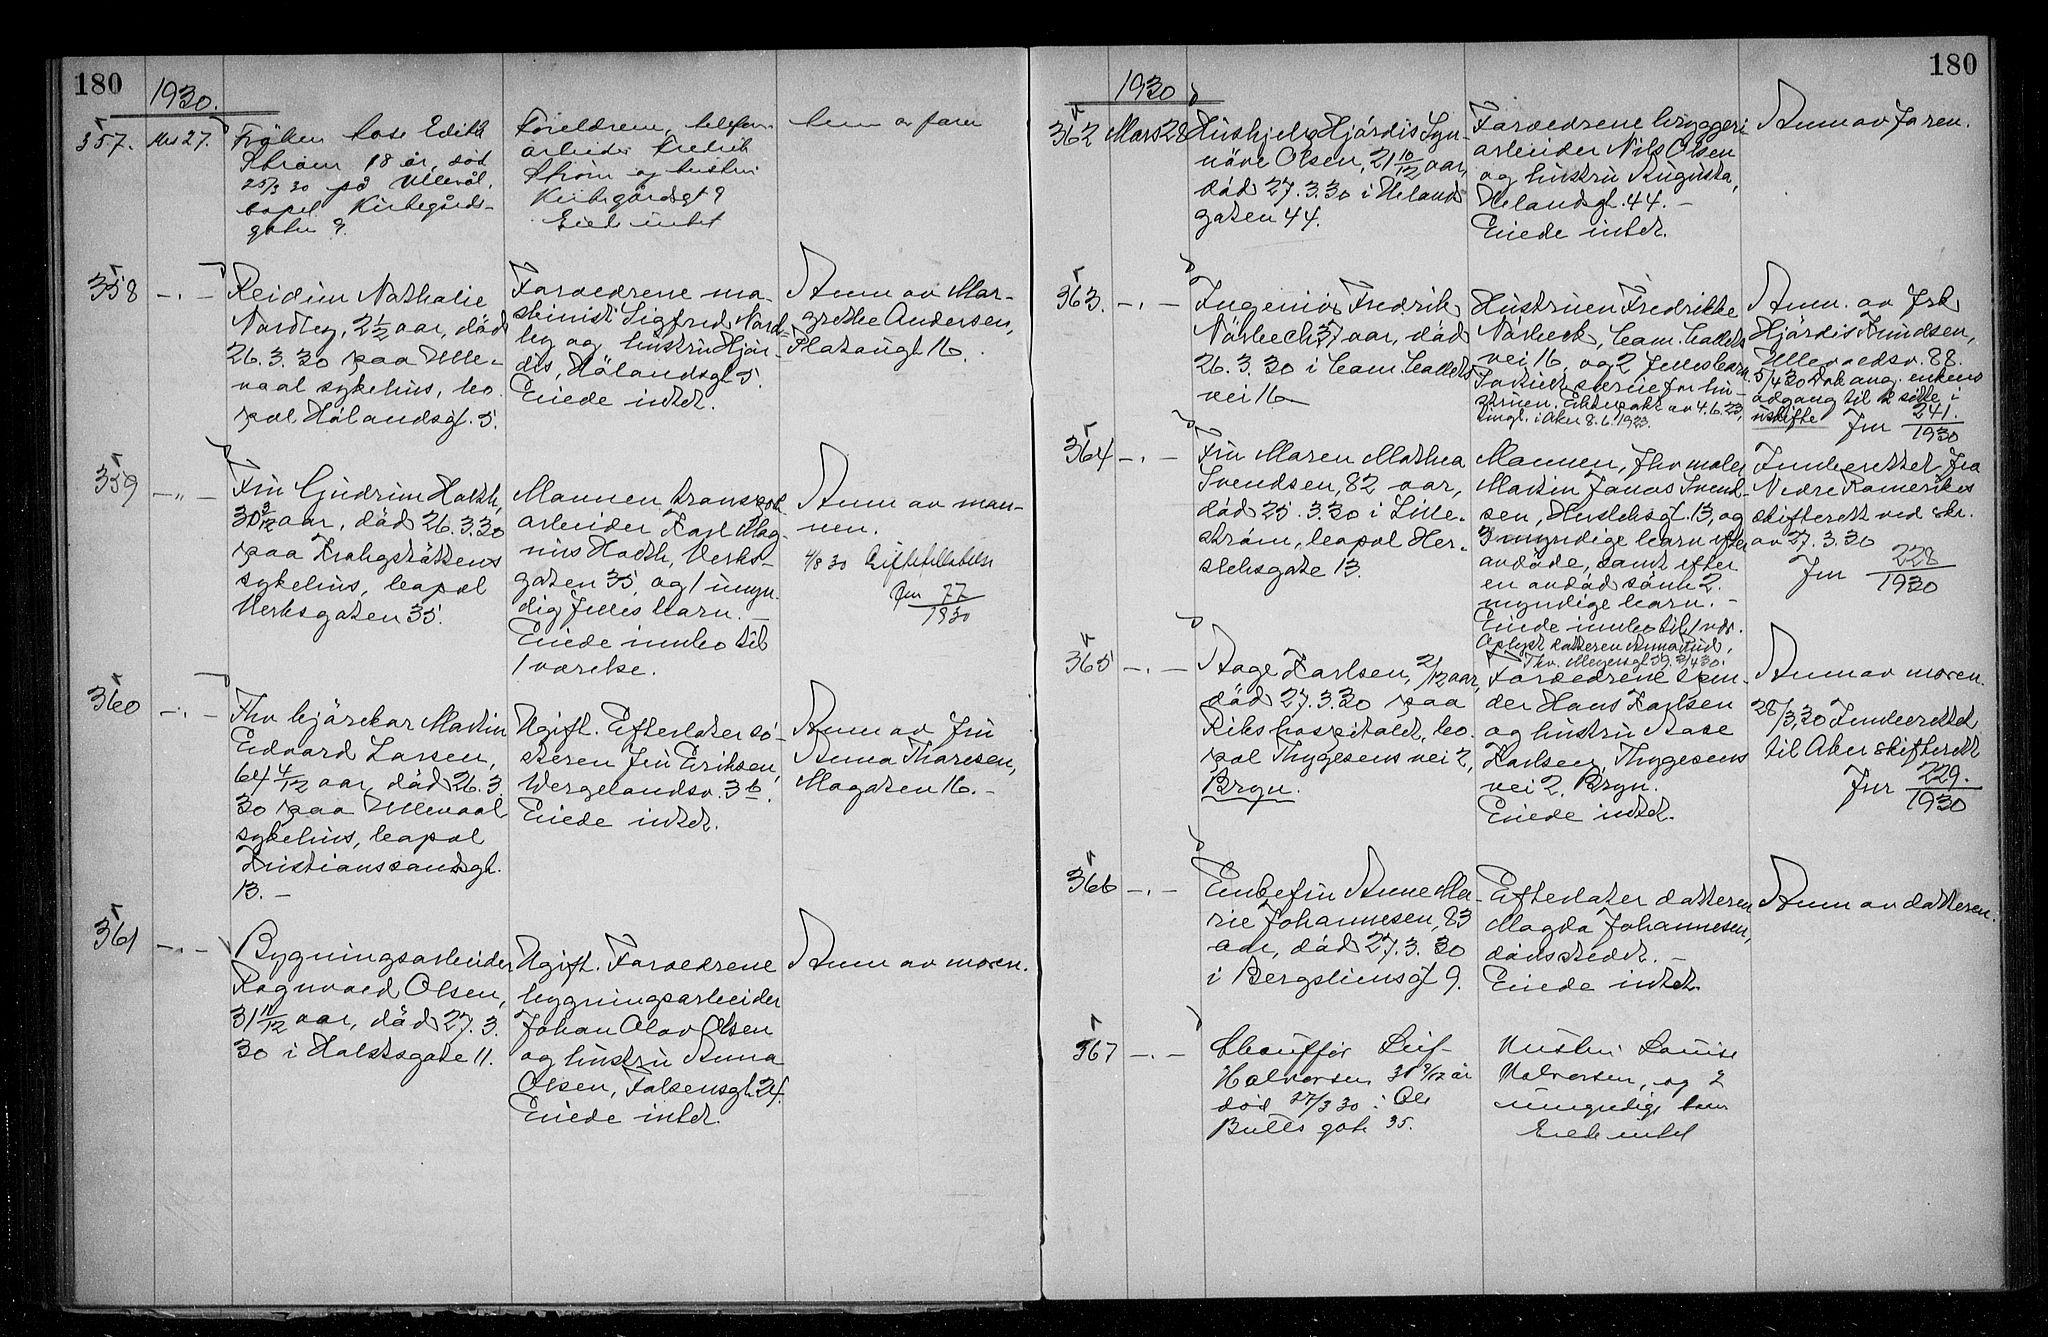 180
1930.
357. Mrs 27.
Frøken Rose Edith
Strøm 18 år, død
25/3 30 på Ullevål,
bopel Kirkegårds-
gaten 9.
Foreldrene, telefon-
arbeider Fredrik
Strøm og hustru
Kirkegårdsgt 9
Eiet intet
Anm av faren
358 - . -
Reidun Nathalie
Nordley, 2 1/2 aar, død
26.3.30 paa Ulle-
vaal sykehus, bo
pæl Hølandsgt. 5.
Forældrene ma-
skinist Sigfred Nord-
ley og hustru Hjør-
dis, Hølandsgt 5.
Eiede intet.
Anm av Mar-
grethe Andersen,
Platougt 16.
359 - " -
Fru Gudrun Holth,
30 3/12 aar, død 26.3.30
paa Krohgstøttens
sykehus, bopæl
Verksgaten 35.
Mannen transport
arbeider Karl Mag-
nus Holth, Verks-
gaten 35, og 1 umyn-
dig fælles barn. -
Eiede innbo til
1 værelse.
Anm av man-
nen.
4/8 30 Giftetilladelse
Jnr 77/1930
360 - . -
Fhv kjørekar Martin
Edvard Larsen,
64 4/12 aar, død 26.3.
30 paa Ullevaal
sykehus, bopæl
Kristianssandsgt.
13. -
Ugift. Efterlater sø-
steren Fru Eriksen,
Wergelandsv. 3 b.
Eiede intet.
Anm av Fru
Anna Thoresen,
Magaten 16. -
361 - . -
Bygningsarbeider
Ragnvald Olsen,
31 11/12 aar, død 27.3.
30 i Holstsgate 11.
Ugift. Forældrene
bygningsarbeider
Johan Olav Olsen
og hustru Anna
Olsen, Falsensgt 24.
Eiede intet.
Anm av moren.
180
1930
362 Mars 28
Hushjelp Hjørdis Syn-
növe Olsen, 21 10/12 aar,
död 27.3.30 i Heland
gaten 44.
Forældrene bryggeri
arbeider Nils Olsen
og hustru Augusta,
Helandsgt. 44. -
Eiede intet.
Anm av faren.
363. - . -
Ingeniør Fredrik
Nørbech 37 aar, död
26.3.30 i Cam. Colletts
vei 16
Hustruen Fredrikke
Nørbeck, Cam. Colletts
vei 16, og 2 fellesbarn.
struen. Ektepakt av 4.6.23,
tingl. i Aker 8.6.1923.
Anm. av Frk
Hjørdis Knudsen,
Ullevaalsv. 88.
5/4 30 Dok ang. enkens
adgang til å sitte i
uskifte Jnr 241./1930
364 - . -
Fru Maren Mathea
Svendsen, 82 aar,
död 25.3.30 i Lille-
strøm, bopæl Her-
slebsgate 13.
Mannen, fhv maler
Martin Jonas Svend-
sen, Herslebsgt. 13, og
3 myndige barn efter
avdøde, samt efter
en avdød sønn 2
myndige barn. -
Eiede innbo til 1 vær.
Oplyst datteren Anna Rud,
Thv. Meyersgt 59. 2/4 30.
Innberettet fra
Nedre Romerikes
skifterett ved skr.
av 27.3.30
Jnr 228/1930
365 - . -
Aage Karlsen, 2/12 aar,
död 27.3.30 paa
Rikshospitalet, bo
pæl Thygesens vei 2,
Bryn.
Forældrene
der Hans Karlsen
og hustru Aase
Karlsen, Thygesens
vei 2, Bryn.
Eiede intet.
Anm av moren.
28/3.30 Innberettet
til Aker skifterett
Jnr 229./1930
366 - . -
Enkefru Anne Ma-
rie Johannesen, 83
aar, död 27.3.30
i Bergsliensgt 9.
Efterlater datteren
Magda Johannesen,
dødsstedet. -
Eiede intet.
Anm av datteren.
367 - . -
Chauffør Leif
Halvorsen 30 9/12 år
død 27/3 30 i Ole
Bulls gate 35.
Hustru Louise
Halvorsen, og 2
umyndige barn
Eiet intet